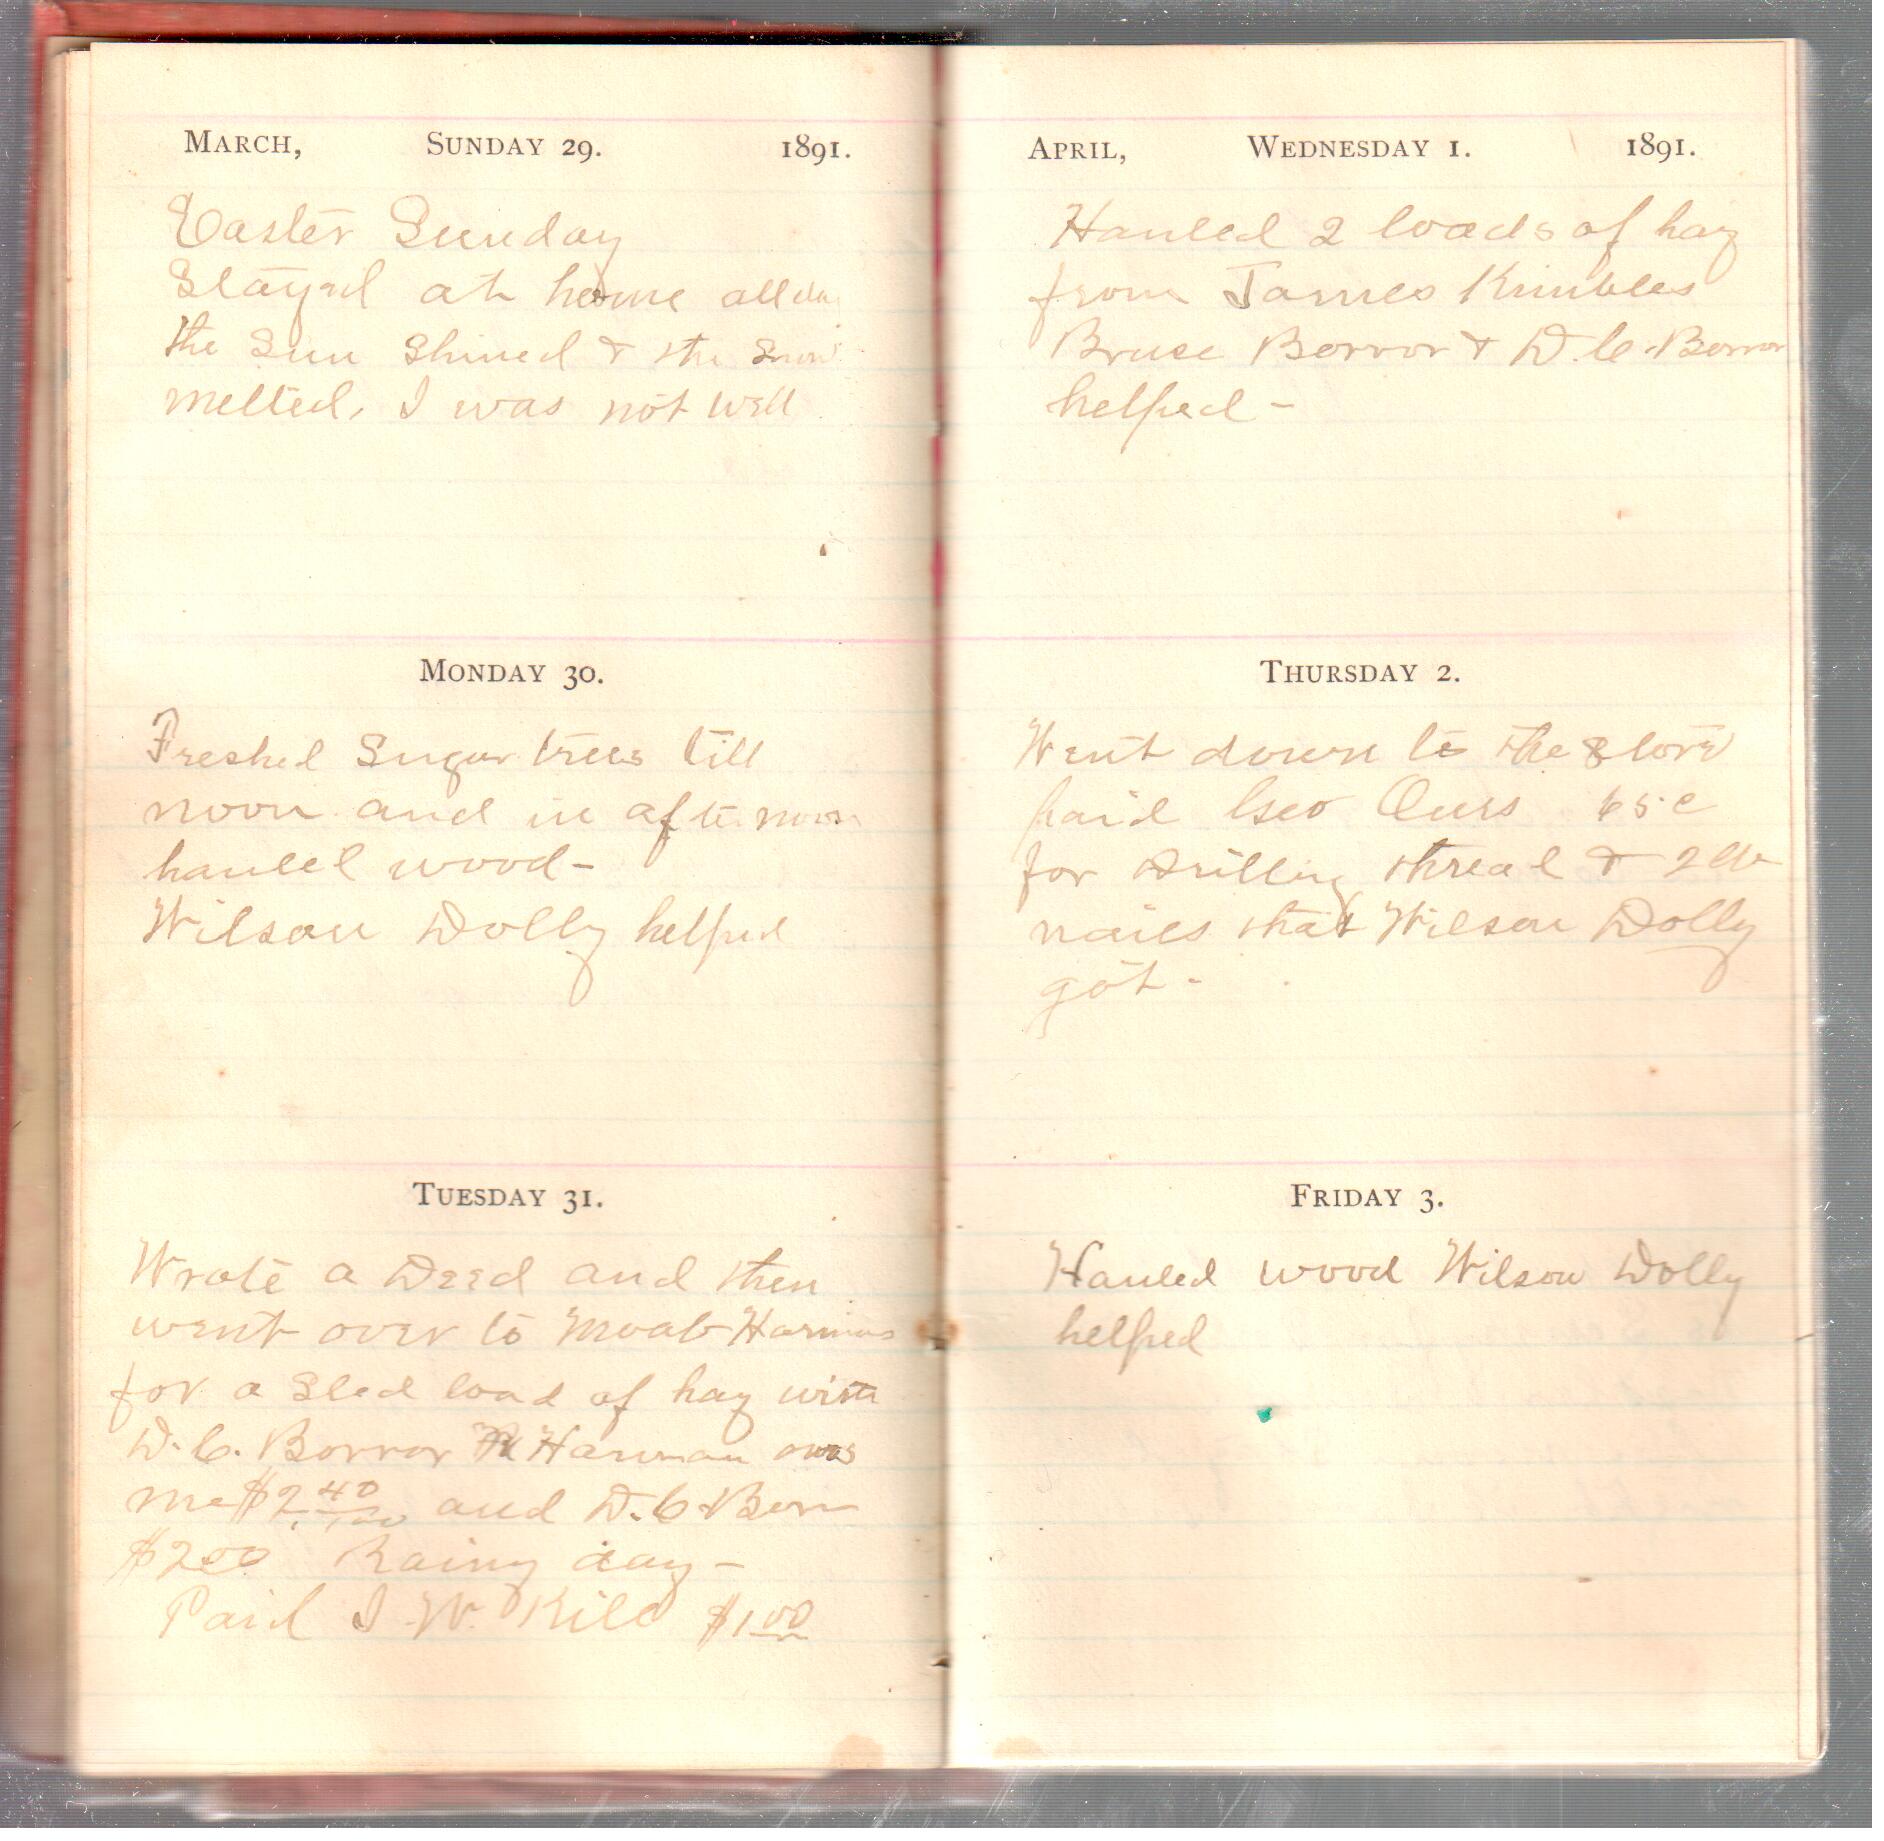 MARCH, SUNDAY 29. 1891.
Easter Sunday
Stayed at home all day
the Sun Shined & the Snow
melted, I was not well
MONDAY 30.
Freshed Sugar trees till
noon and in afternoon
hauled wood-
Wilson Dolly helped
TUESDAY 31.
Wrote a Deed and then
went over to Moab Harmans
for a Sled load of hay with
D. C. Borror Harman owes
me $2. 40/100 and D. C. Borror
$200 Rainy day-
Paid I. W. Kile $1.00
APRIL, WEDNESDAY 1. 1891.
Hauled 2 loads of hay
from James Kimbles
Bruse Borror & D. C. Borror
helped-
THURSDAY 2.
Went down to the Store
paid Geo Ours 65c
for drilling thread & 2 lb
nails that Wilson Dolly
got-
FRIDAY 3.
Hauled wood Wilson Dolly
helped